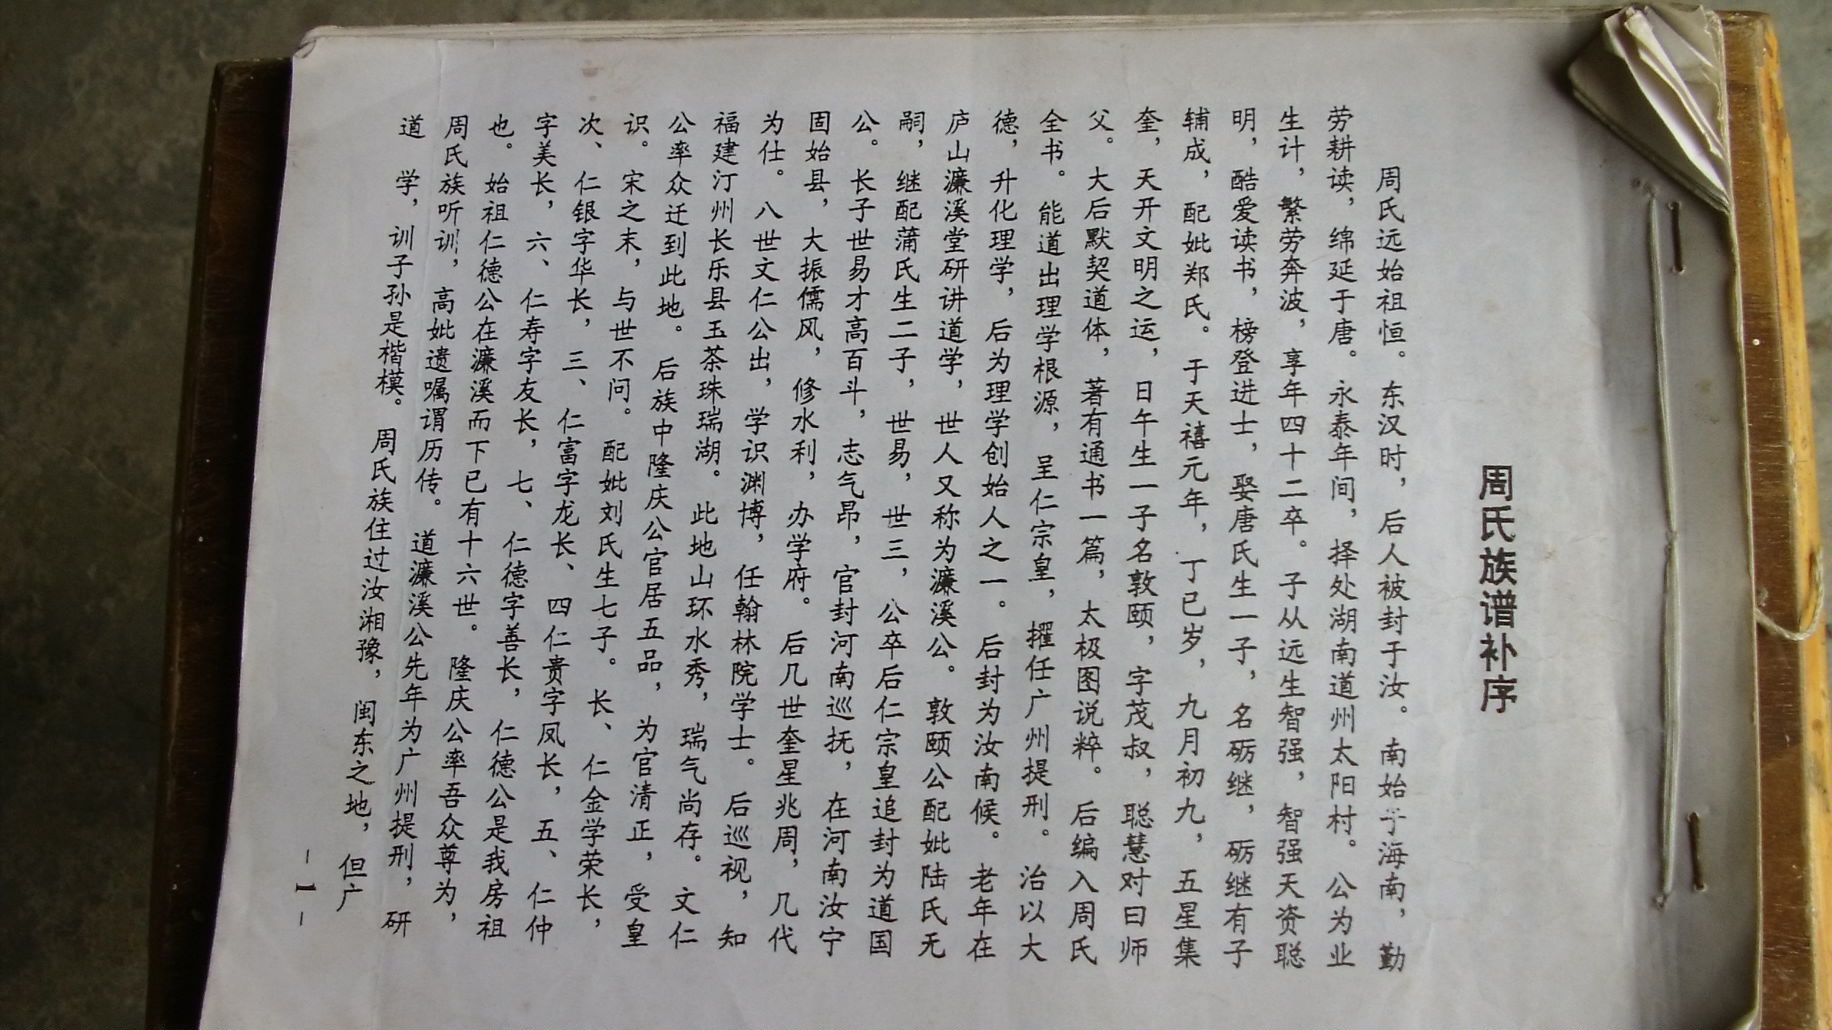 周氏族谱补序
周氏远始祖恒。东汉时，后人被封于汝。南始于海南，勤
劳耕读，绵延于唐。永泰年间，择处湖南道州太阳村。公为业
生计，繁劳奔波，享年四十二卒。子从远生智强，智强天资聪
明，酷爱读书，榜登进士，娶唐氏生一子，名砺继，砺继有子
辅成，配妣郑氏。于天禧元年，丁巳岁，九月初九，五星集
奎，天开文明之运，日午生一子名敦颐，字茂叔，聪慧对曰师
父。大后默契道体，著有通书一篇，太极图说粹。后编入周氏
全书。能道出理学根源，呈仁宗皇，擢任广州提刑。治以大
德，升化理学，后为理学创始人之一。后封为汝南候。老年在
庐山濂溪堂研讲道学，世人又称为濂溪公。敦颐公配妣陆氏无
嗣，继配蒲氏生二子，世易，世三，公卒后仁宗皇追封为道国
公。长子世易才高百斗，志气昂，官封河南巡抚，在河南汝宁
固始县，大振儒风，修水利，办学府。后几世奎星兆周，几代
为仕。八世文仁公出，学识渊博，任翰林院学士。后巡视，知
福建汀州长乐县玉茶珠瑞湖。此地山环水秀，瑞气尚存。文仁
公率众迁到此地。后族中隆庆公官居五品，为官清正，受皇
识。宋之末，与世不问。配妣刘氏生七子。长、仁金学荣长，
次、仁银字华长，三、仁富字龙长、四仁贵字凤长，五、仁仲
字美长，六、仁寿字友长，七、仁德字善长，仁德公是我房祖
也。始祖仁德公在濂溪而下已有十六世。隆庆公率吾众尊为，
周氏族听训，高妣遗嘱谓历传。道濂溪公先年为广州提刑，研
道 学，训子孙是楷模。周氏族住过汝湘豫，闽东之地，但广
－1－